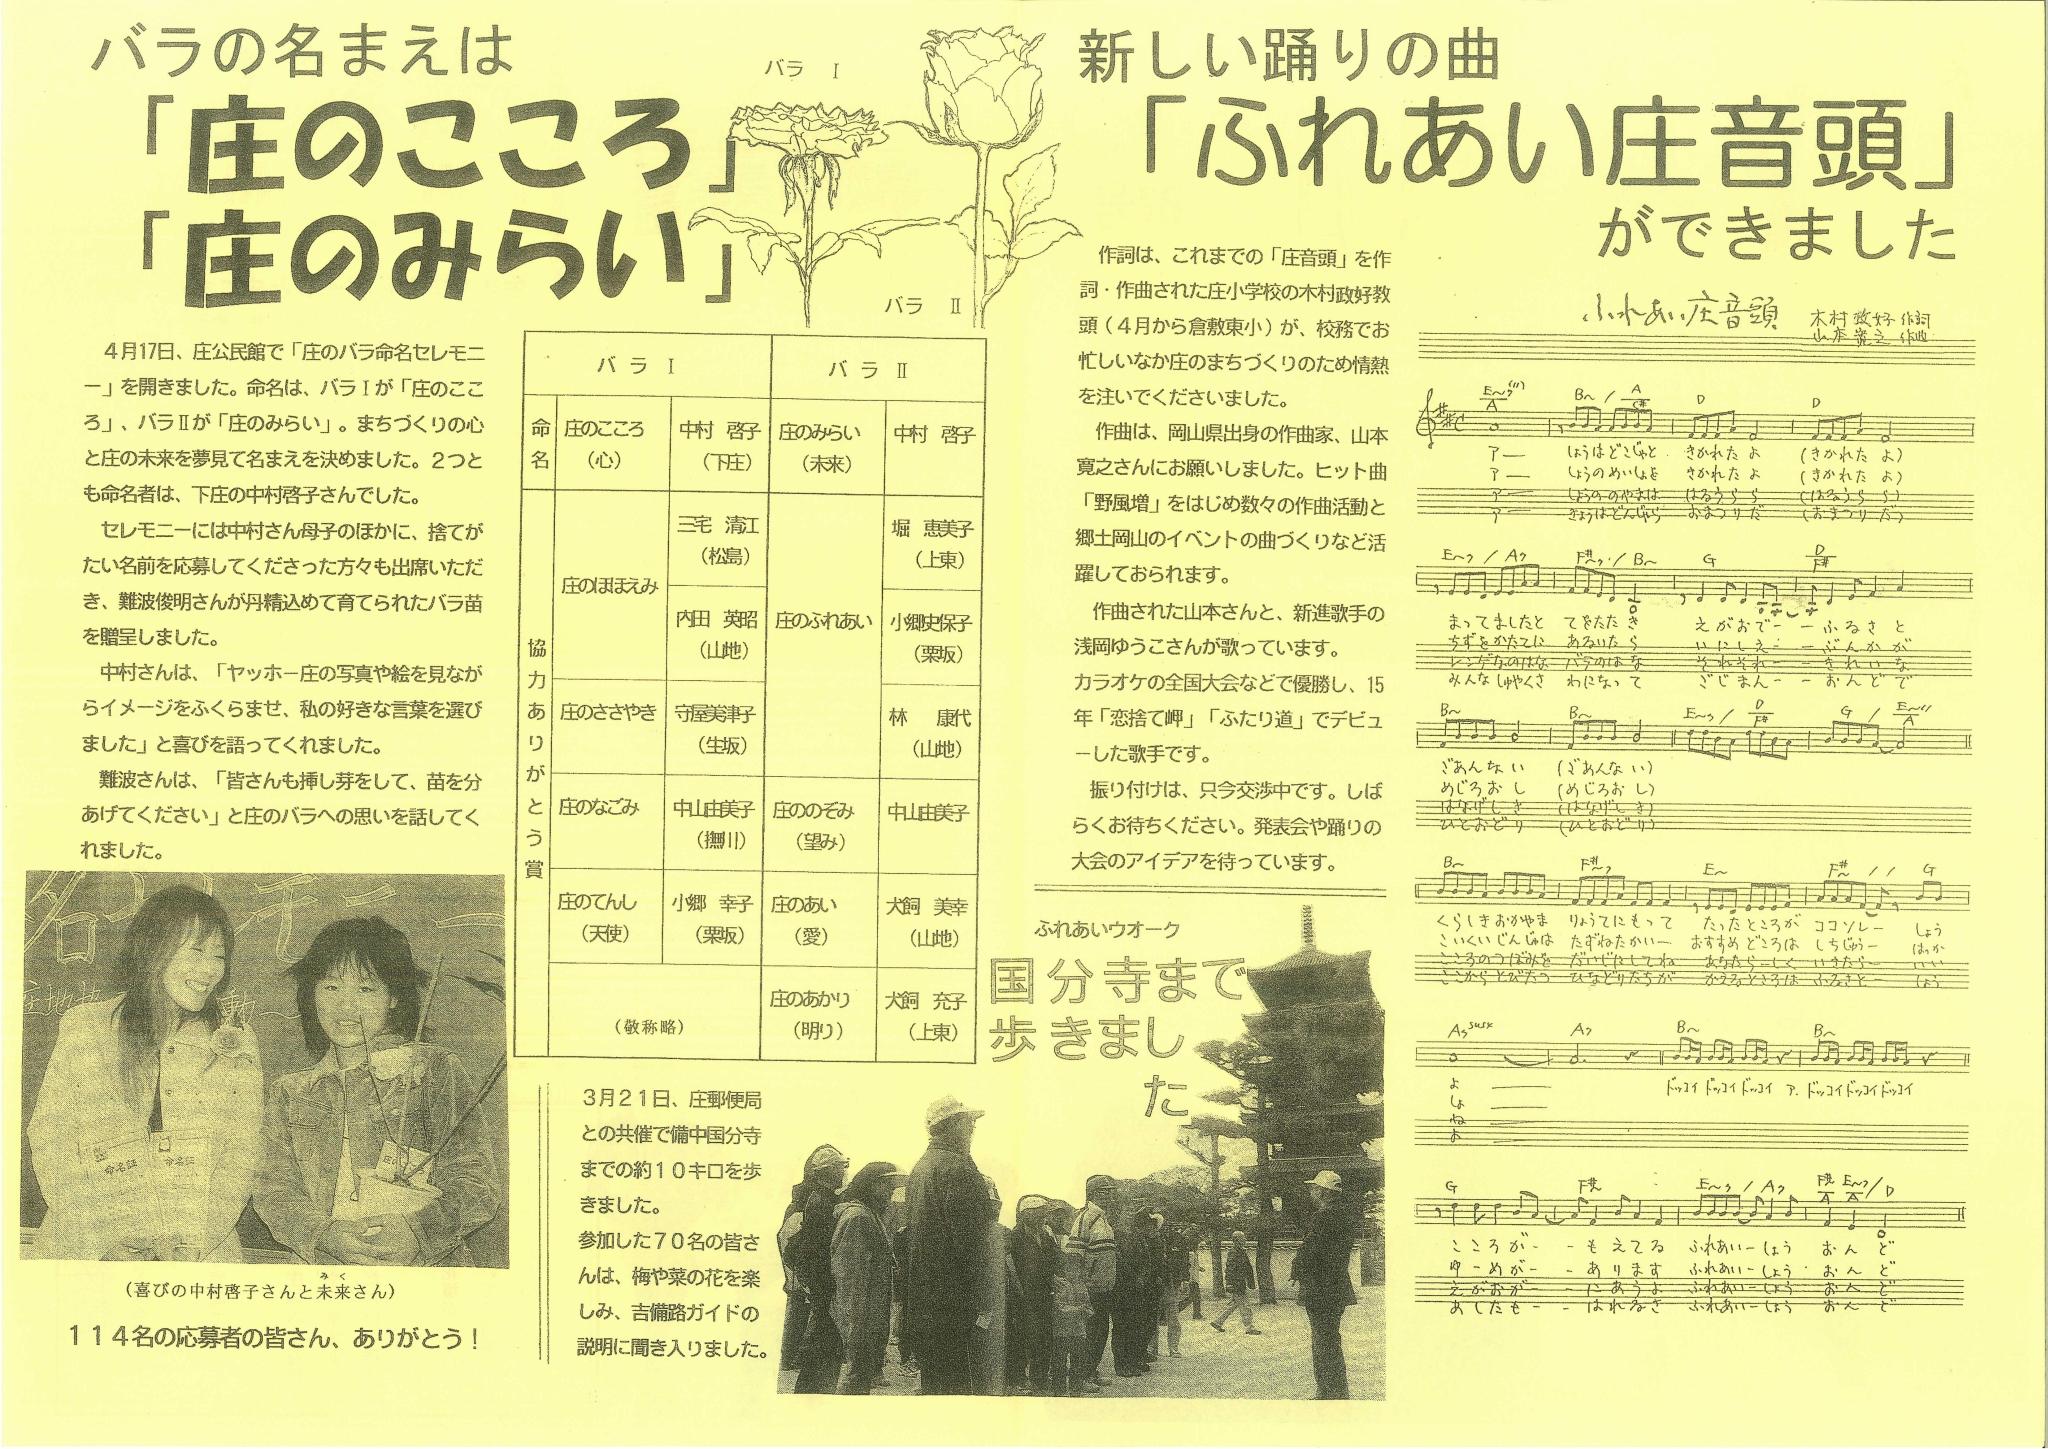 バラの名まえは
「庄のこころ」
「庄のみらい」
バラ Ⅰ
バラ Ⅱ
4月17日、庄公民館で「庄のバラ命名セレモニ
ー」を開きました。命名は、バラⅠが「庄のここ
ろ」、バラⅡが「庄のみらい」。まちづくりの心
と庄の未来を夢見て名まえを決めました。2つと
も命名者は、下庄の中村啓子さんでした。
セレモニーには中村さん母子のほかに、捨てが
たい名前を応募してくださった方々も出席いただ
き、難波俊明さんが丹精込めて育てられたバラ苗
を贈呈しました。
中村さんは、「ヤッホー庄の写真や絵を見なが
らイメージをふくらませ、私の好きな言葉を選び
ました」と喜びを語ってくれました。
難波さんは、「皆さんも挿し芽をして、苗を分
あげてください」と庄のバラへの思いを話してく
れました。
命名証
(喜びの中村啓子さんと未来さん)
みく
114名の応募者の皆さん、ありがとう！
バラ Ⅰ バラ Ⅱ
命名 庄のこころ 中村 啓子 庄のみらい 中村 啓子
(心) (下庄) (未来)
協力ありがとう賞
庄のほほえみ 三宅 清江 (松島)
内田 英昭 (山地)
庄のふれあい 堀 恵美子 (上東)
小郷史保子 (栗坂)
林 康代 (山地)
庄のささやき 守屋美津子 (生坂)
庄のなごみ 中山由美子 (撫川) 庄ののぞみ (望み) 中山由美子
庄のてんし (天使) 小郷 幸子 (栗坂) 庄のあい (愛) 犬飼 美幸 (山地)
(敬称略) 庄のあかり (明り) 犬飼 充子 (上東)
3月21日、庄郵便局
との共催で備中国分寺
までの約10キロを歩
きました。
参加した70名の皆さ
んは、梅や菜の花を楽
しみ、吉備路ガイドの
説明に聞き入りました。
ふれあいウオーク
国分寺まで
歩きまし
た
新しい踊りの曲
「ふれあい庄音頭」
ができました
作詞は、これまでの「庄音頭」を作
詞・作曲された庄小学校の木村政好教
頭(4月から倉敷東小)が、校務でお
忙しいなか庄のまちづくりのため情熱
を注いでくださいました。
作曲は、岡山県出身の作曲家、山本
寛之さんにお願いしました。ヒット曲
「野風増」をはじめ数々の作曲活動と
郷土岡山のイベントの曲づくりなど活
躍しておられます。
作曲された山本さんと、新進歌手の
浅岡ゆうこさんが歌っています。
カラオケの全国大会などで優勝し、15
年「恋捨て岬」「ふたり道」でデビュ
ーした歌手です。
振り付けは、只今交渉中です。しば
らくお待ちください。発表会や踊りの
大会のアイデアを待っています。
ふれあい庄音頭
木村政好 作詞
山本寛之 作曲
アー しょうはどこじゃと きかれた よ (きかれた よ)
アー しょうのめいしょを きかれた よ (きかれた よ)
アー しょうののやまは はるうらら (はるうらら)
アー きょうはどんじゃら おまつりだ (おまつりだ)
まってましたと てをたたき えがおでーーふるさと
ちずをかたてに あるいたら いにしえーーぶんかが
レンゲなのはな バラのはな それぞれーーきれいな
みんなしゅやくさ わになって ごじまんーーおんどで
ごあんない (ごあんない)
めじろおし (めじろおし)
はなげしき (はなげしき)
ひとおどり (ひとおどり)
くらしきおかやま りょうてにもって たったところが ココソレー しょう
こいくいじんじゃは たずねたかいー おすすめどころは しちじゅうー はっか
こころのつぼみを だいじにしてね あなたらーしく いきたらー いい
ここからとびたつ ひなどりたちが かえるところは ふるさとー しょう
よ
しょ
ね
よ
ドッコイ ドッコイ ドッコイ ア.ドッコイ ドッコイ ドッコイ
こころがーーもえてる ふれあいーしょう おんど
ゆーめがーーあります ふれあいーしょう おんど
えがおがーーにあうよ ふれあいーしょう おんど
あしたもーーはれるさ ふれあいーしょう おんど